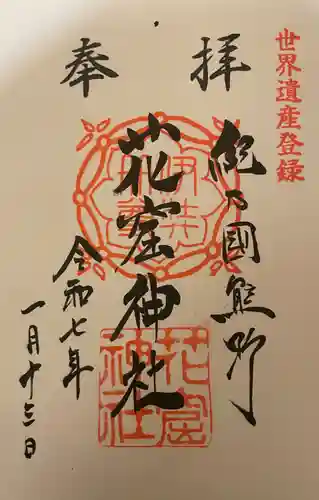 世界遺産登録
奉拝
紀乃國熊野
花窟神社
令和七年
一月十三日
花窟神社